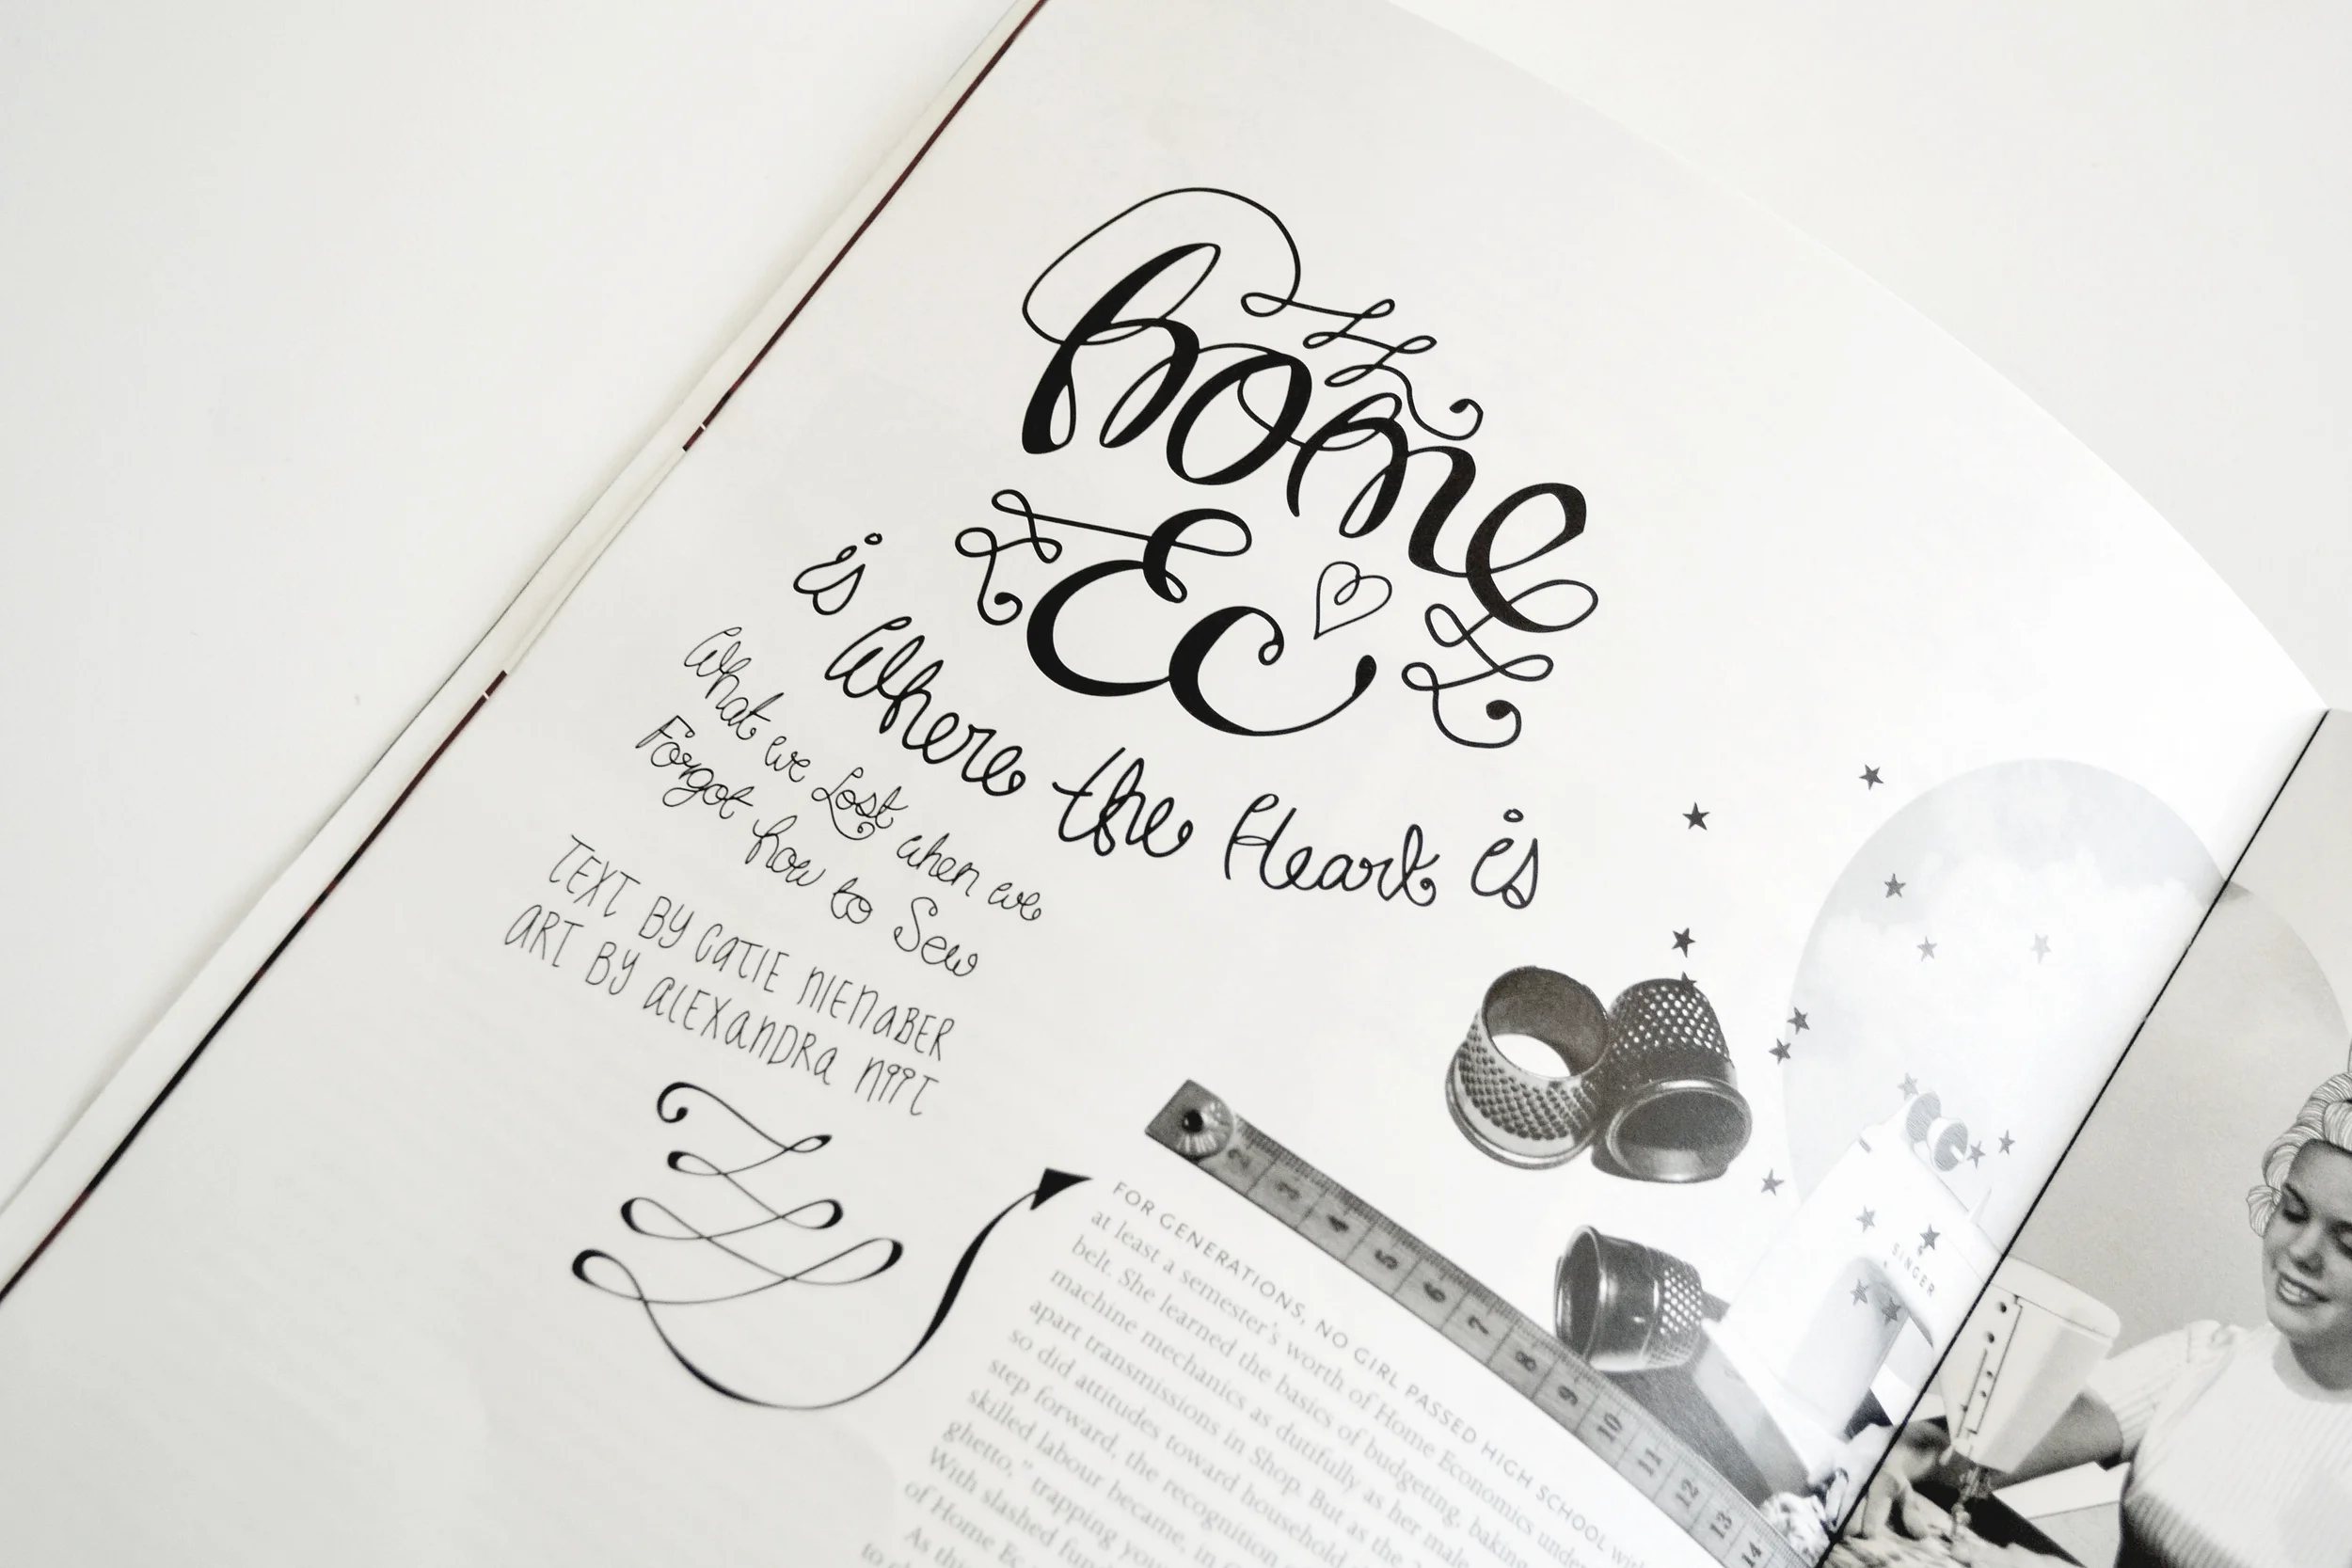 home
Ec
is Where the Heart is
What we Lost when we
Forgot how to Sew
TEXT BY CATIE NIENABER
ART BY ALEXANDRA NIPT
FOR GENERATIONS, NO GIRL PASSED HIGH SCHOOL
at least a semester's worth of Home Economics under
belt. She learned the basics of budgeting, baking
machine mechanics as dutifully as her
apart transmissions in Shop. But as the
so did attitudes toward household
step forward, the recognition
skilled labour became, in
ghetto," trapping
With slashed
of Home Ec
As
to
2 3 4 5 6 7 8 9 10 11 12 13 14
SINGER